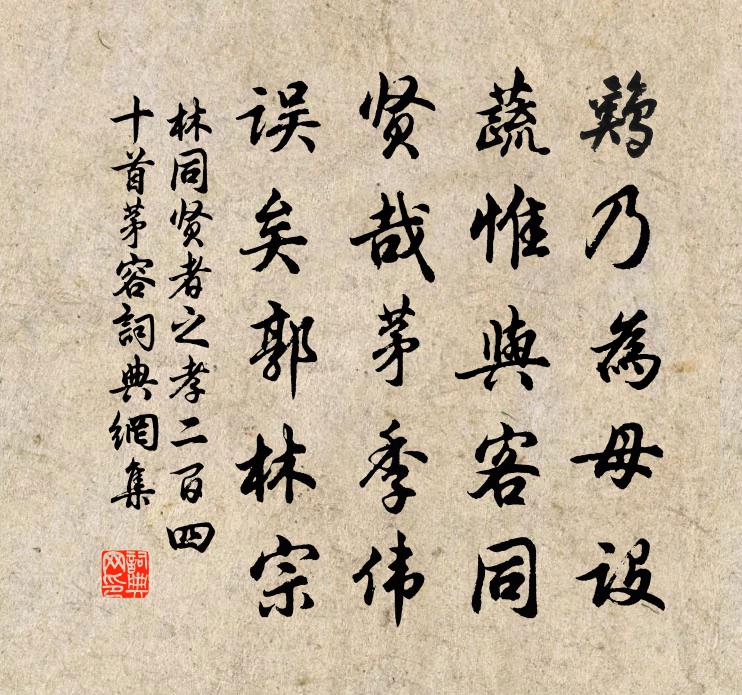 鷄乃為母設
蔬惟與客同
贤哉茅季伟
误矣郭林宗
林同贤者之孝二百四
十首茅容詞典網集
詞典
网印